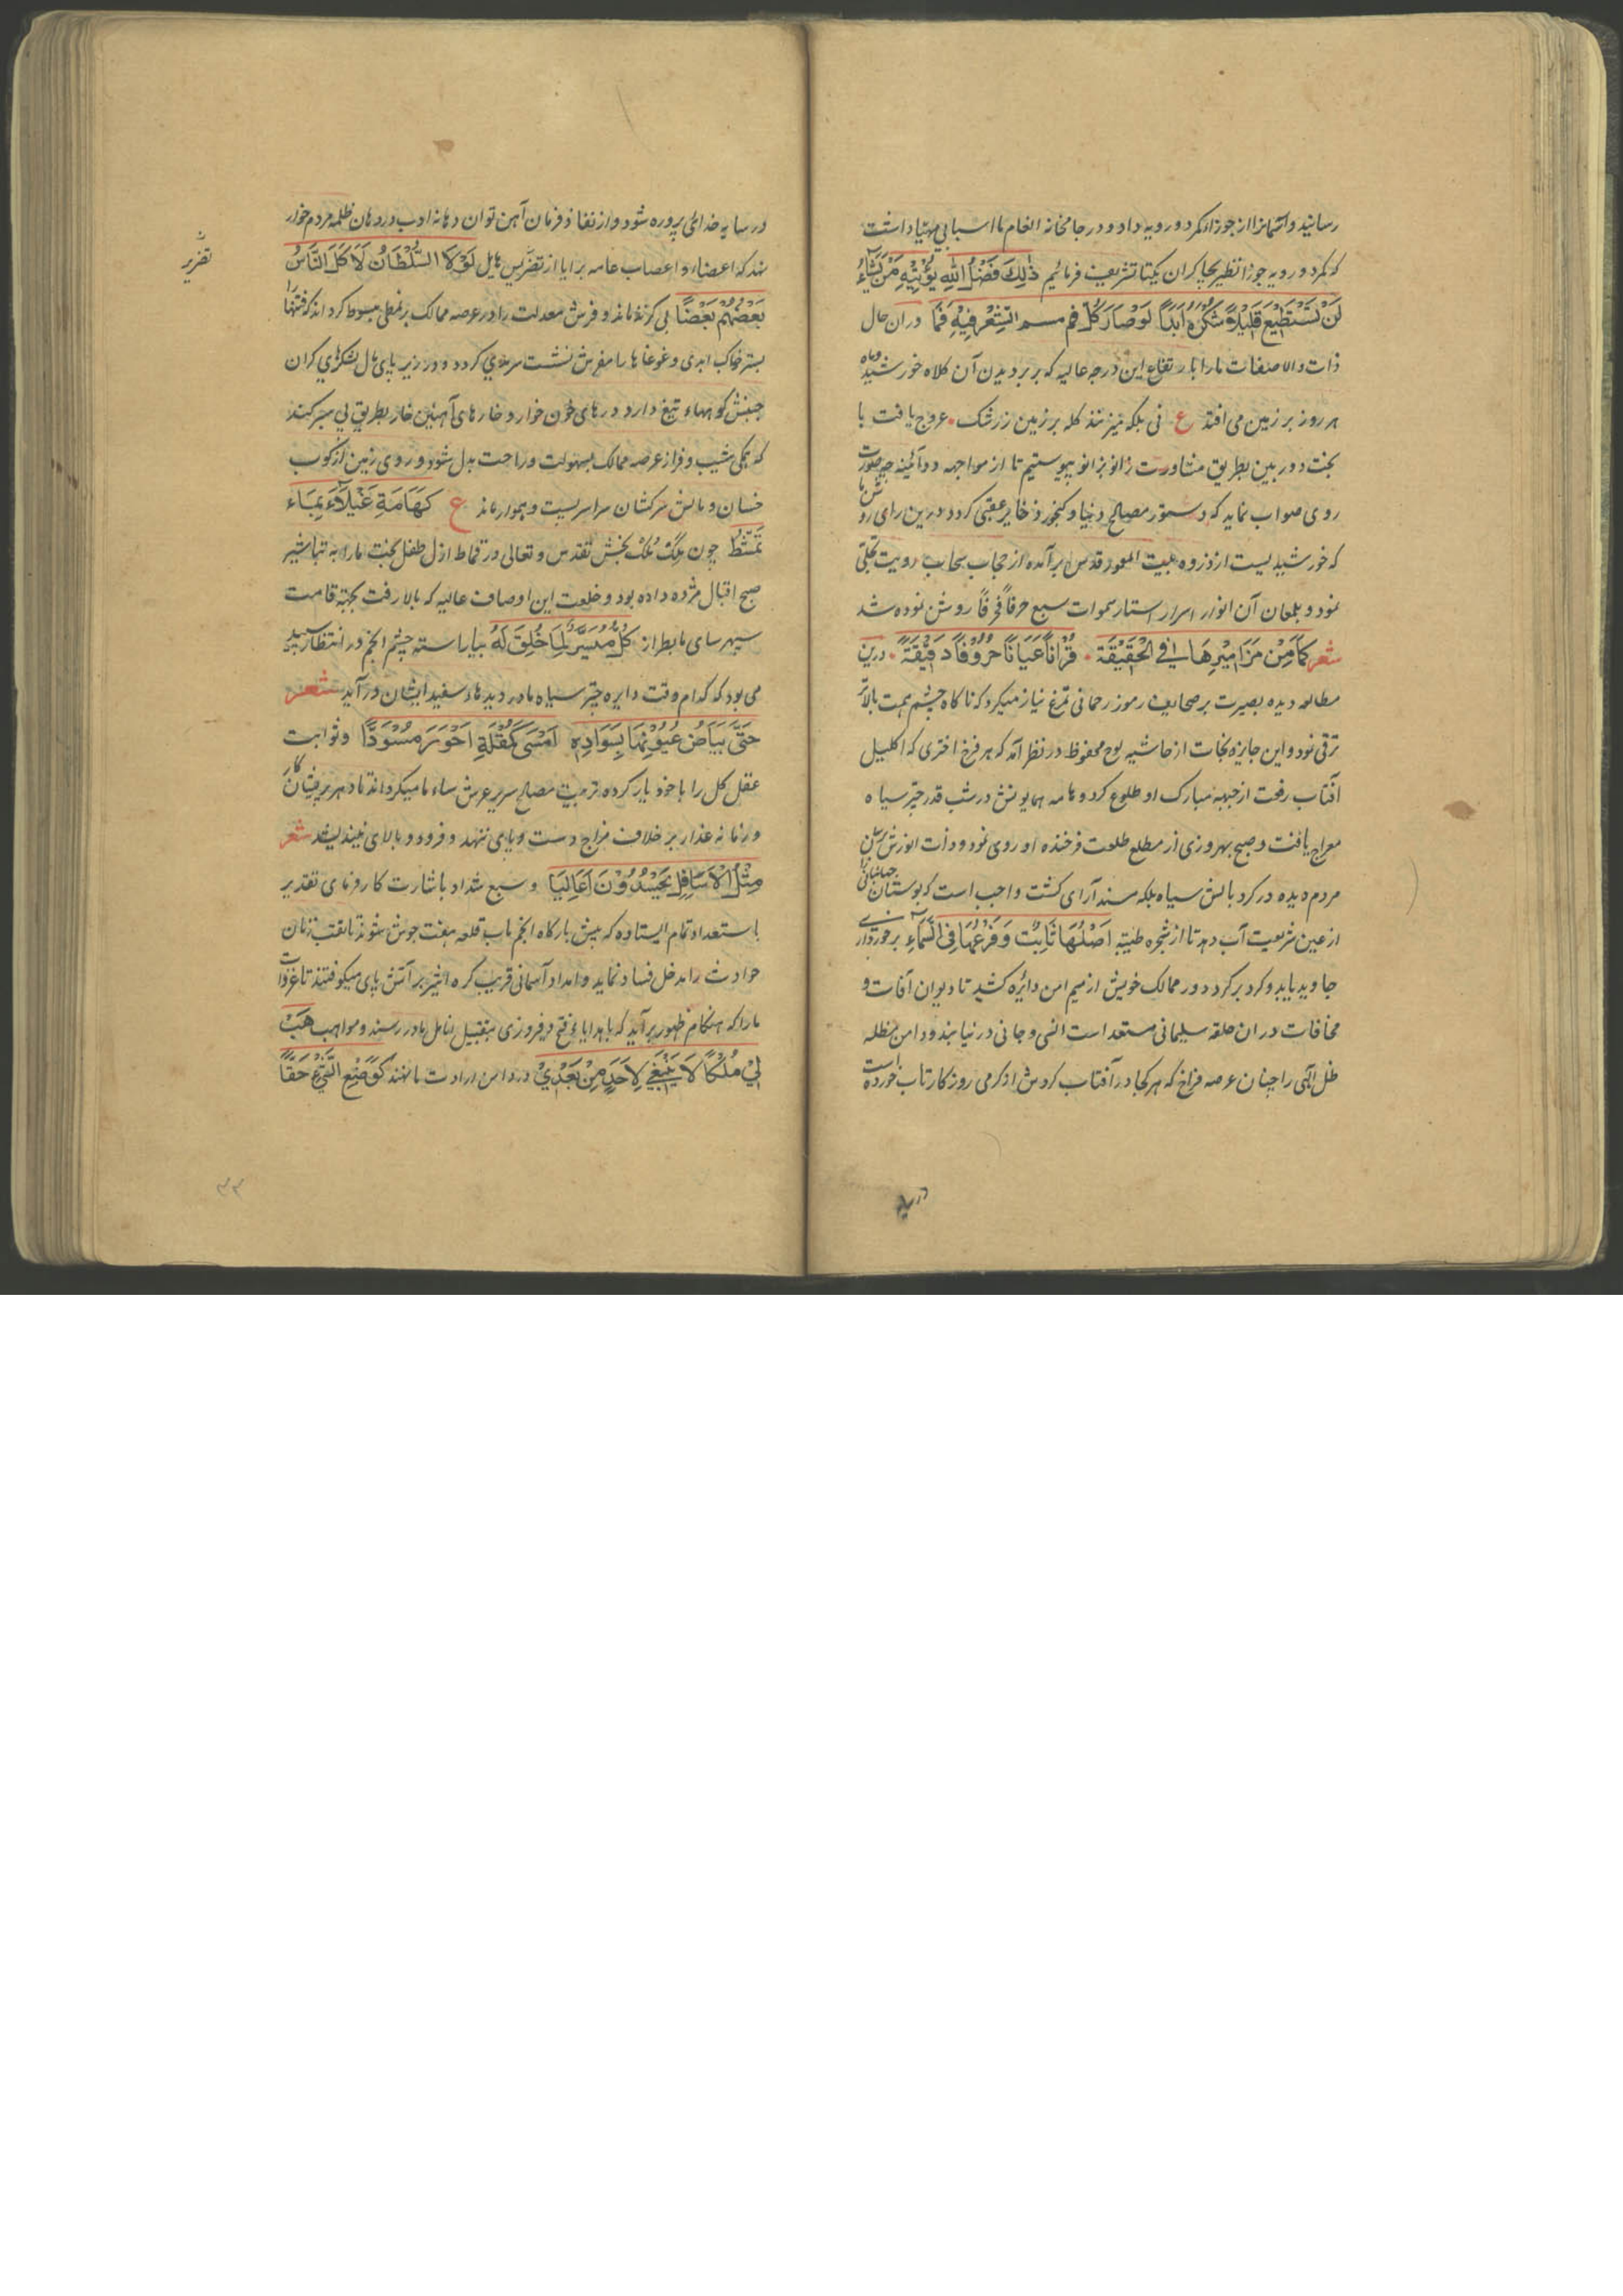 رسانید و آسمانرا از جوزا کمر دو رویه داد و در جامخانه انعام ما اسبابی مهیا داشت
که کمر دو رویه جوزا نظیر بچاکران یکتا تشریف فرمائیم ذٰلِکَ فَضْلُ اللهِ یُؤْتِیْهِ مَنْ یَشَآءُ
لَنْ تَسْتَطِیْعَ قَلِیْلَهُ شَکَرُوهُ اَبَدًا لَوْصَارَ کُلُّ فم الشَّعْرِ فِیْهِ فَمًا دران حال
ذات والا صفات ما را بارتفاع این درجه عالیه که بر بر دیدن آن کلاه خورشید و ماه
هر روز بر زمین می افتد ع نی بلکه میزنند کله بر زمین ز رشک عروج یافت با
بخت دوربین بطریق مشاورت زانو بزانو پیوستیم تا از مواجهه دو آئینه چه صورت
روی صواب نماید که دستور مصالح دنیا و کنجور ذخایر عقبی کردد درین رای روشن ما
که خورشیدیست از ذروه بیت المعمور قدس برآمده از حجاب سحاب رویت تجلی
نمود و بلمعان آن انوار اسرار استار سموات سبع حرفاً فحرفاً روشن نموده شد
شعر کَمَا مِنْ مَزَامِیْرِهَا فِی الْحَقِیْقَة قُرْاناً عَیَاناً حُرُوْفاً دَقِیْقَةً درین
مطالعه دیده بصیرت بر صحایف رموز رحمانی تمرغ نیاز میکرد که ناکاه چشم همت بالاتر
ترقی نمود و این جایزه نجات از حاشیه لوح محفوظ در نظر آمد که هر فرخ اختری که اکلیل
آفتاب رفعت از جبهه مبارک او طلوع کرد و هامه همایونش در شب قدر چتر سیاه
معراج یافت و صبح بهروزی از مطلع طلعت فرخنده او روی نمود و ذات انورش بسان
مردم دیده در کرد بالش سیاه بلکه مسند آرای کشت واجب است که بوستان جهانبانی را
از عین شریعت آب دهد تا از شجره طیبه اَصْلُهَا ثَابِتٌ وَفَرْعُهَا فِی السَّمَآءِ برخورداری
جاوید یابد و کرد بر کرد دور ممالک خویش از میم امن دائره کشید تا دیوان آفات و
مخافات در ان حلقه سلیمانی مستعد است انسی و جانی در نیابند و دامن مظله
ظل الهی را چنان عرصه فراخ که هر کجا در آفتاب کردش از کرمی روزکار تاب خورده است
در سایه
در سایه خدائی پروره شود و از نفاذ فرمان آهن توان دهانه ادب در دهان ظلمه مردم خوار
نهد که اعضاء و اعصاب عامه برایا از تضریس هایل لَوْلَا السُّلْطَانُ لَاَکَلَ النَّاسُ
بَعْضُهُمْ بَعْضًا بی کزند ماند و فرش معدلت را در عرصه ممالک بر نمطی مبسوط کرداند که فتنها را
بستر خاک ابدی و غوغاها را مفرش نشست سرمدی کردد و در زیر پای مال لشکرهای کران
جنبش کوهها تیغ دارد درهای خون خوار و خارهای آهنین خار بطریق پی سپر کنند
که یکی شیب و فراز عرصه ممالک بسهولت و راحت بدل شود و روی زمین از کوب
خسان و مالش سرکشان سراسر پست و هموار ماند ع کَهَامَةٍ غَیْلَآءَ بِمَاء
تَمَشَّطُ چون مَلِک مُلک بخش تقدس و تعالی در قماط ازل طفل بخت ما را به تباشیر
صبح اقبال مژده داده بود و خلعت این اوصاف عالیه که بالا رفت بجبه قامت
سپهر سای ما بطراز کُلٌّ مُیَسَّرٌ لِمَا خُلِقَ لَهُ بیاراسته چشم انجم در انتظار سپید
می بود که کدام وقت دایره چتر سیاه ما در دیدهاء سفید ایشان درآید شعر
حَتّٰی بَیَاضُ عُیُوْنِهَا بِسَوَادِهِ اَمْسَی کَمُقْلَةِ اَحْوَرَ مُسْوَدًّا و ثوابت
عقل کل را با خود یار کرده ترتیب مصالح سریر عرش ساء ما میکرداند تا دهر
و زمانه غدار بر خلاف مزاج دست و پای ننهد و فرود و بالای نیندیشد شعر
مِثْلُ الْاَسَافِلِ یَحْسُدُوْنَ اَعَالِیَا و سبع شداد باشارت کارفرمای تقدیر
باستعداد تمام ایستاده که پیش بارکاه انجم باب قلعه هفت جوش شوند تا نقب زنان
حوادث را مدخل فساد نماید و امداد آسمانی قریب کره اثیر بر آتش پای میکوفتند تا غزوات
ما را که هنکام ظهور برآید که با هدایاء فتح و فیروزی بتقبیل انامل ما در رسند و مواهب هَبْ
لِیْ مُلْکًا لَا یَنْبَغِیْ لِاَحَدٍ مِنْ بَعْدِیْ در دامن ارادت ما نهند کَوَضْعِ الشَّیْءِ حَقًّا
۳۳